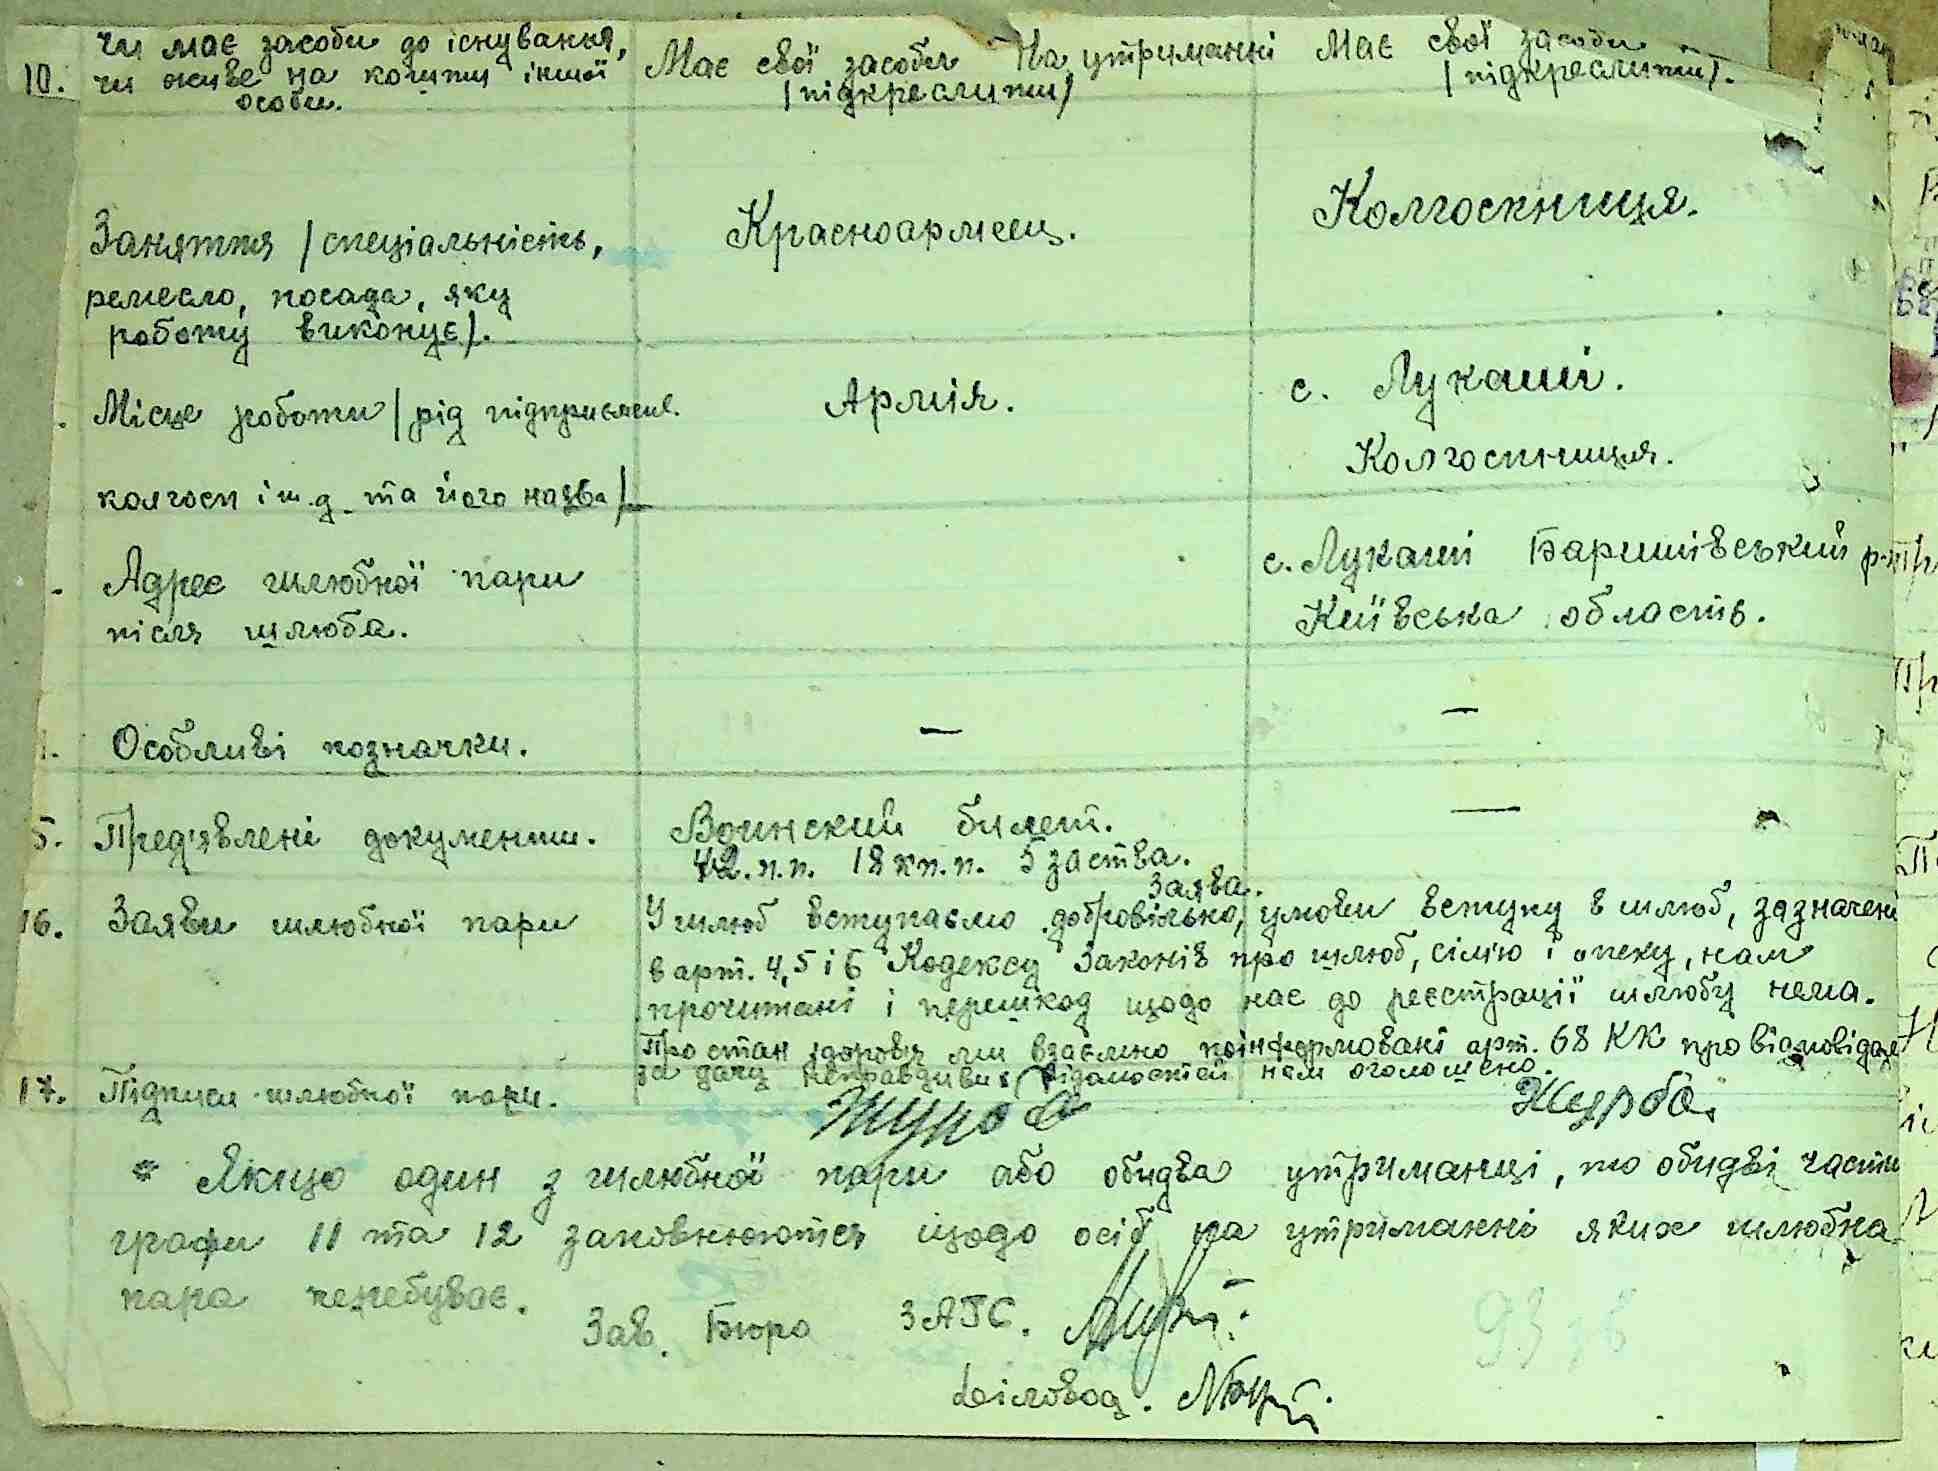 чи має засоби до існування,
10. чи живе на кошти іншої
особи.
Має свої засоби На утриманні
/підкреслити/
Має свої засоби
/підкреслити/.
Заняття /спеціальність,
ремесло, посада, яку
роботу виконує/.
Красноармеец.
Колгоспниця.
Місце роботи /рід підприємст.
колгосп і т.д. та його назва/
Армія.
с. Лукаші.
Колгоспниця.
Адрес шлюбної пари
після шлюба.
с. Лукаші Баришівський р-н
Київська область.
Особливі позначки.
—
—
5. Пред'явлені документи.
Воинский билет.
42.п.п. 18 кп.п. 5 заства.
—
16. Заяви шлюбної пари
Заява.
У шлюб вступаємо добровільно, умови вступу в шлюб, зазначені
в арт. 4, 5 і 6 Кодексу Законів про шлюб, сім'ю і опеку, нам
прочитані і перешкод щодо нас до реєстрації шлюбу нема.
Про стан здоров'я ми взаємно поінформовані арт. 68 КК про відповідал
за дачу неправдивих відомостей нам оголошено.
17. Підписи шлюбної пари.
Журба.
* Якщо один з шлюбної пари або обидва утриманці, то обидві части
графи 11 та 12 заповнюються щодо осіб на утриманні яких шлюбна
пара перебуває.
Зав. Бюро ЗАГС.
Діловод.